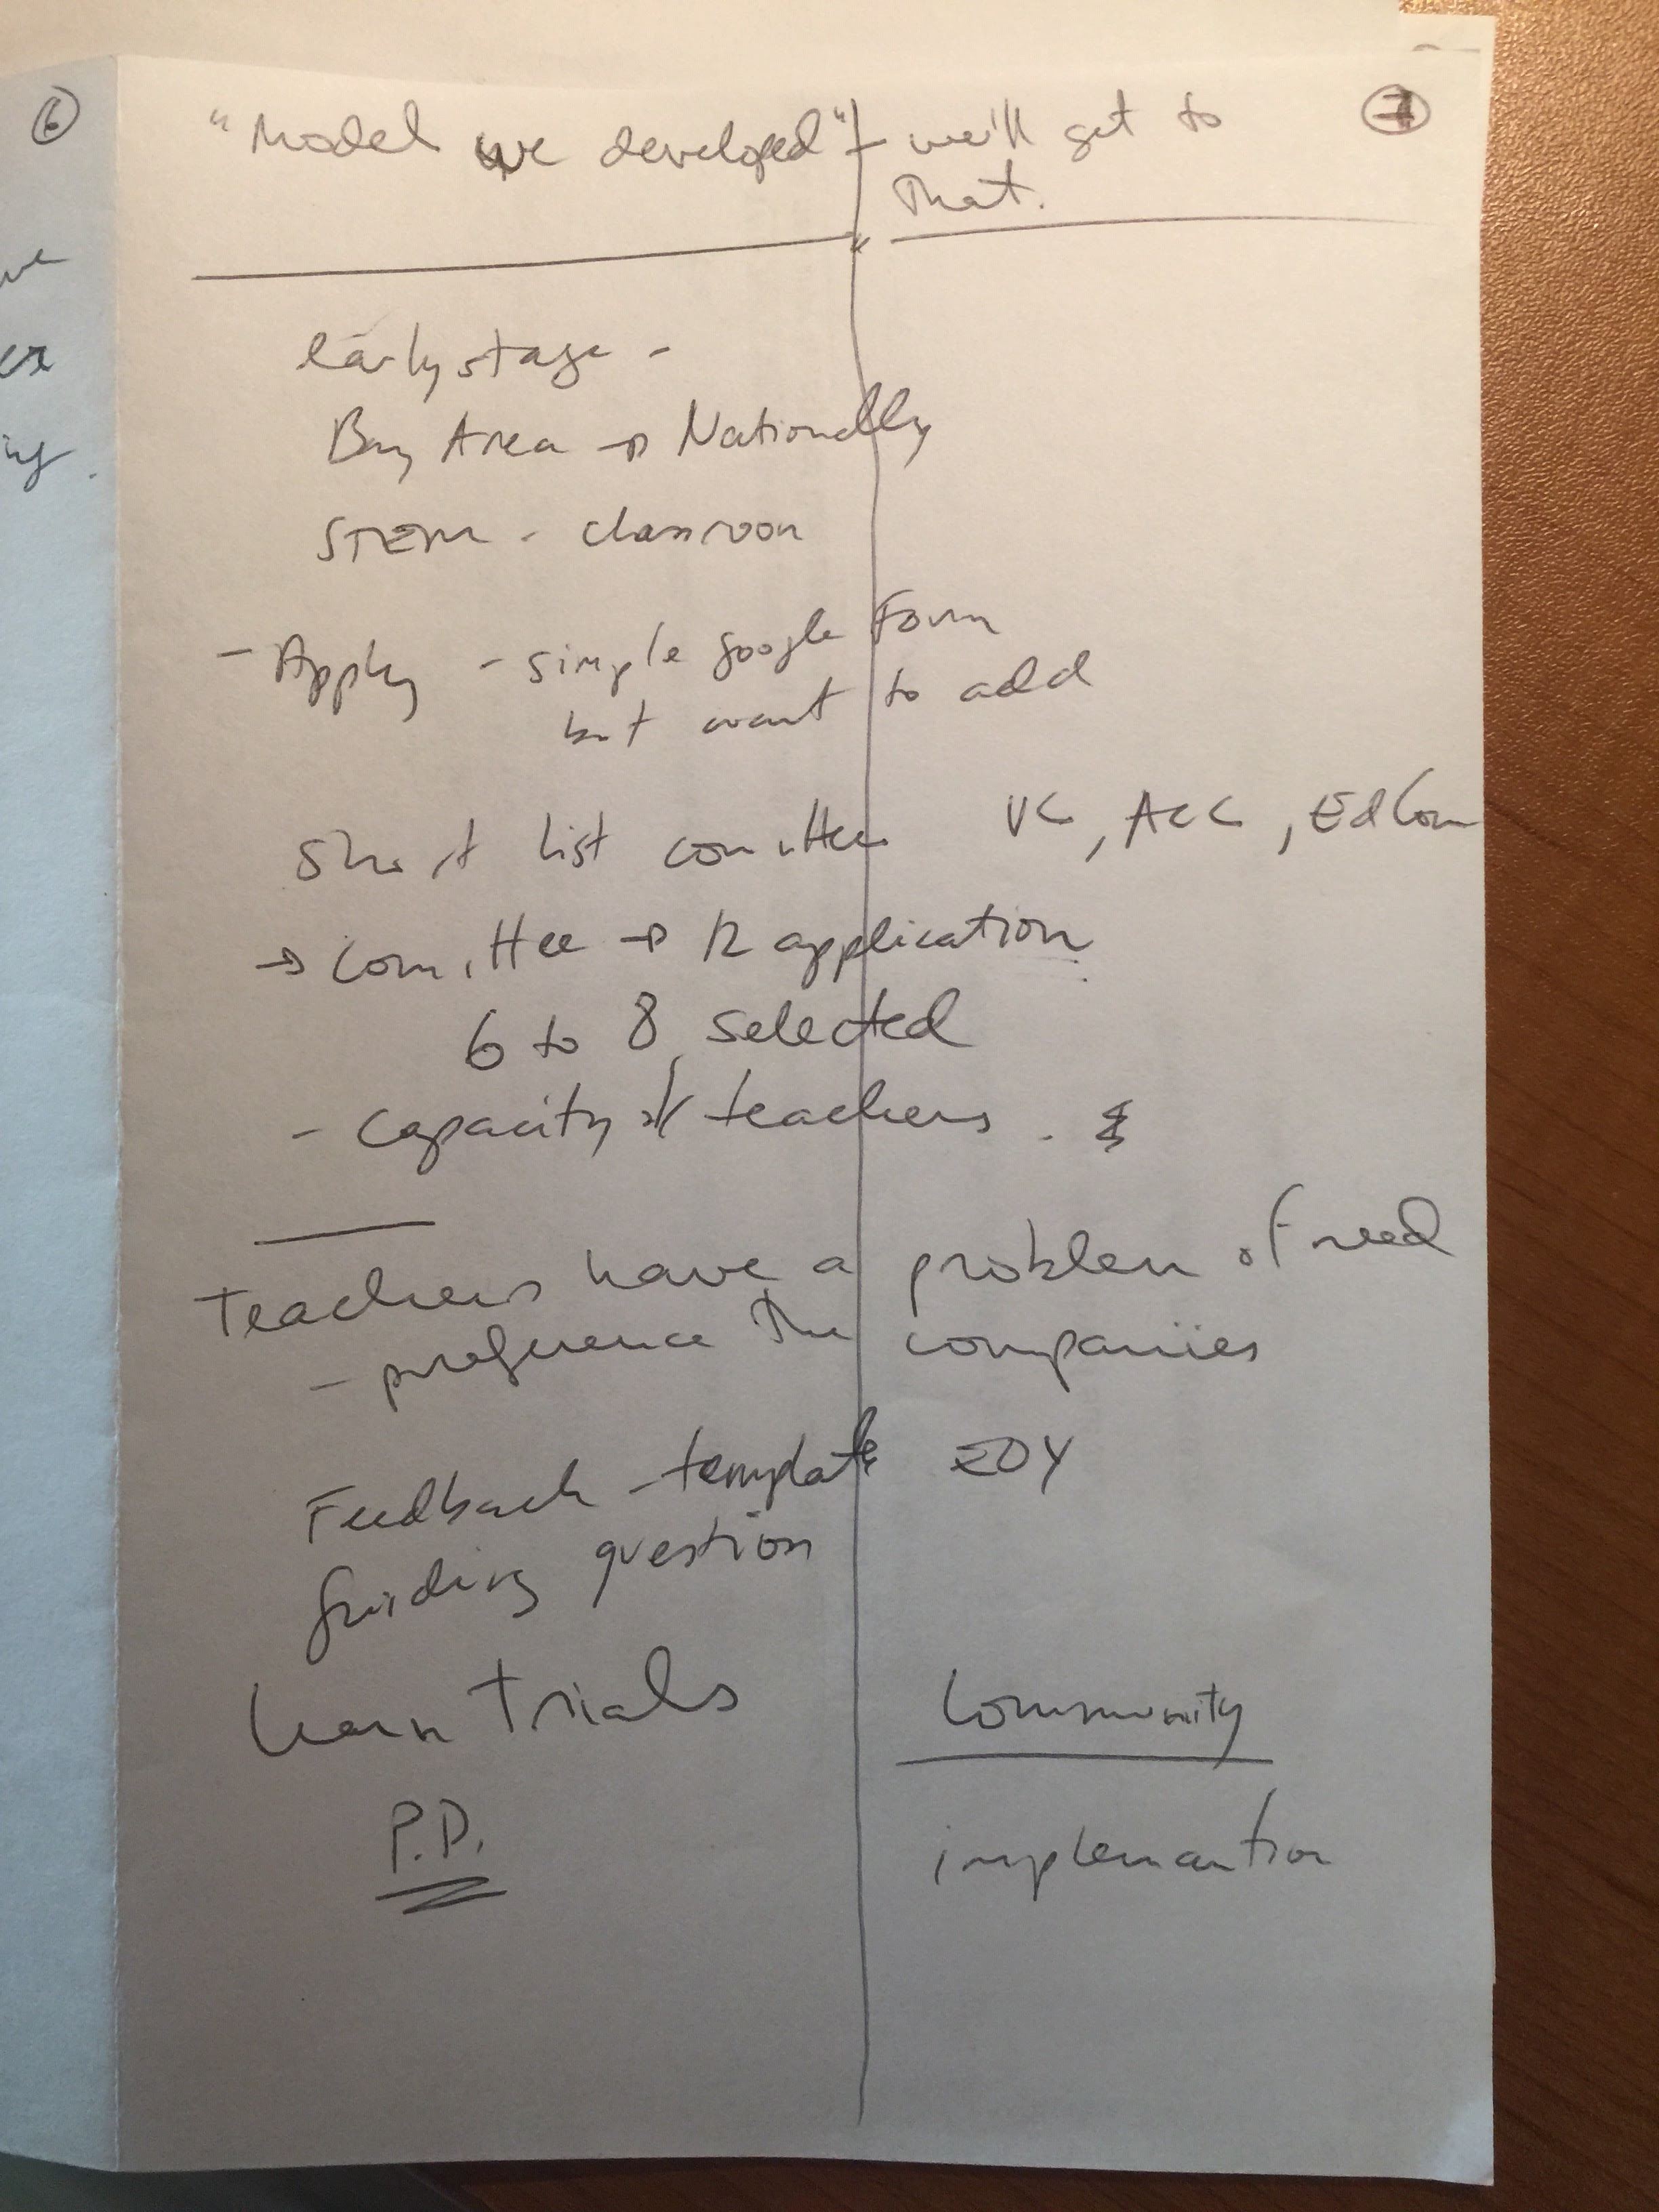 6
"Model we developed" - we'll get to
7
that.
early stage -
Bay Area → Nationally
STEM - classroom
- Apply - simple google Form
but want to add
Short list committee VC, Acc, EdCom
→ Committee → 12 application
6 to 8 selected
- Capacity of teachers.
Teachers have a problem of need
- preference the companies
Feedback - template EDY
Guiding question
Learn Trials
Community
P.D.
implemantion